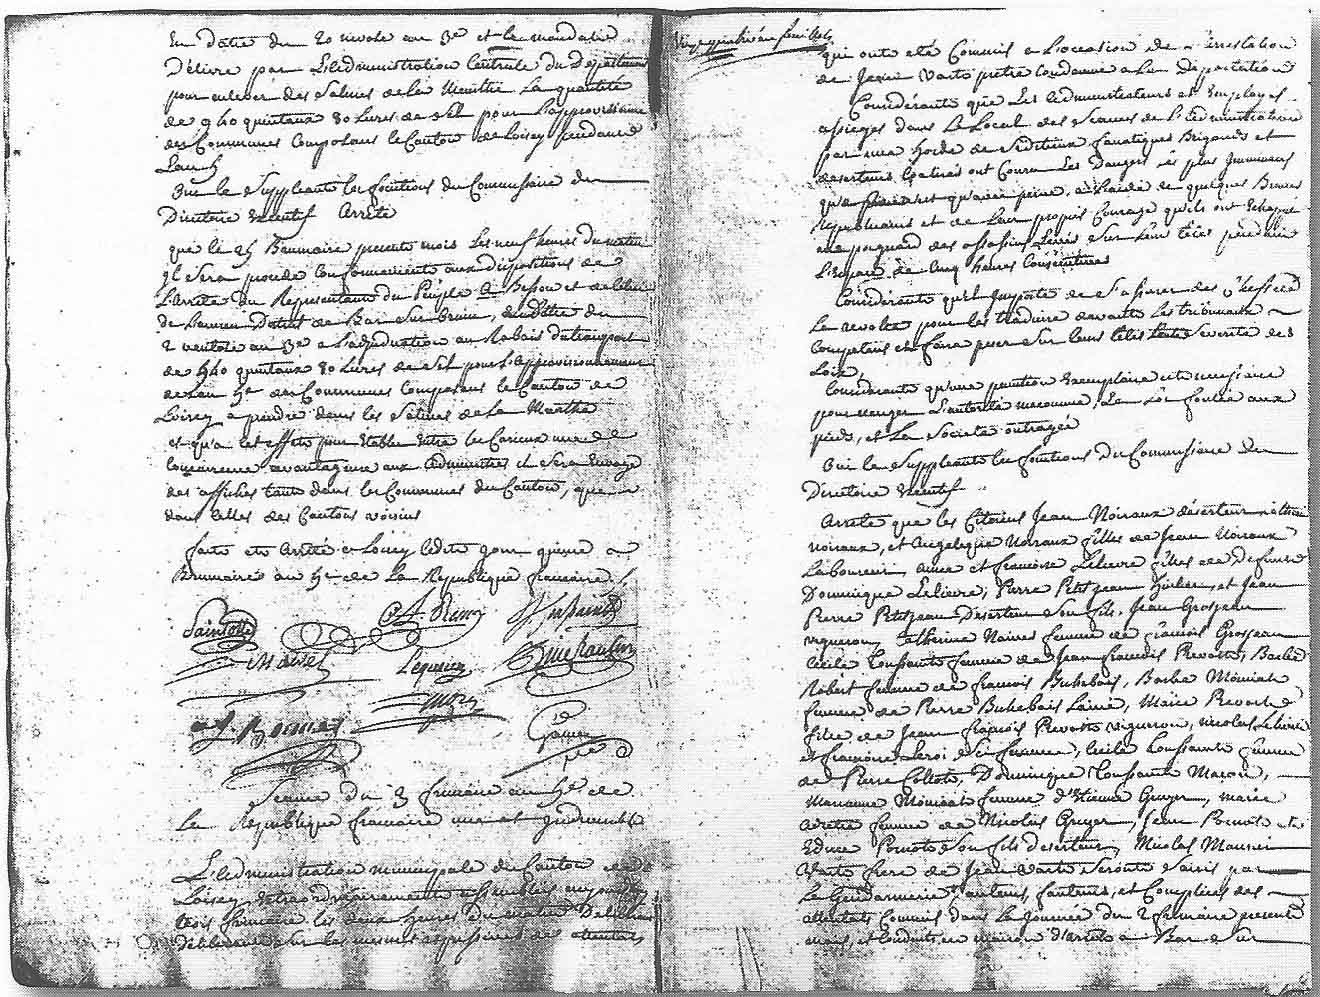 En datte du 20 nivose an 3e et le mandatie
Délivré par L'administration Centrale du Departement
pour enlever des Salines de la Meurthe la quantité
de 940 quintaux 80 Livres de Sel pour L'approvisionne
des Communes Composans le Canton de Loisey pendant
L'an 5
Ouie le Suppléante les fonctions du Commissaire du
Directoire executif Arrete
que le 25 Brumaire presente mois les neuf heures du matin
Il Sera procedé conformement aux dispositions de
L'Arrete du Representant du Peuple
de District de Bar Sur Ornain, en datte du
2 ventose an 3e a L'adjudication au Rabais du transport
de 940 quintaux 80 Livres de Sel pour L'approvisionnement
de L'an 5e des Communes Composans le Canton de
Loisey a prendre dans les Salines de la Meurthe
et qu'a cet effet pour Etablir entre les Curieux une
concurrence avantageuse aux administrés il Sera Envoyé
des affiches tant dans les Communes du Canton, que
dans celles des Cantons voisins
faite et Arrêté a Loisey ledit jour quinze
Brumaire an 5e de La Republique francaise
Seance du 3 frimaire an 5e de
La Republique francaise une et indivisible
L'administration municipale du Canton de
Loisey Extraordinairement assemblée aujourdhuy
trois frimaire les deux heures du matin
Deliberant Sur les mesures des attentats
Vingt quatrieme feuillet
qui onte été Commis a L'occasion de L'arrestation
de Jean Varte pretre condamné a la Deportation
Considérante que Les administrateurs et Employés
assiegés dans Le Local des Seances de L'administration
par une horde de Seditieux fanatiques Brigands et
deserteurs ont Couru Les Dangers les plus Imminens
qu'avec peine, a L'aide de quelques Braves
Republicains et de Leur propre Courage qu'ils ont echappé
au poignard des assassins Levés Sur Leur têtes pendant
L'Espace de Cinq heures Consécutives
Considérante qu'il Importe de S'assurer des
La revolte pour les traduire devante Les tribunaux
Competens et faire peser Sur leurs têtes toute Sevérité des
Loix,
Considérante qu'une punition Exemplaire est necessaire
pour venger L'autorité meconnue, La Loi foulée aux
pieds, et La Societé outragée
Oui le Suppléante les fonctions du Commissaire du
Directoire executif
Arrete que les Citoiens Jean Noiraux déserteur
Noiraux, et Angelique Noiraux filles de Jean Noiraux
Laboureur, Anne et francoise Lelievre filles de Defunt
Dominique Lelievre, Pierre Petitjean huilier, et Jean
Pierre Petitjean Deserteur Son fils, Jean Grosjean
vigneron, Catherine femme de francois Grosjean
Cécile Toussainte femme de Jean francois Prevoste, Barbe
Robert femme de francois Buhebois, Barbe
femme de Pierre Buhebois Lainé, Marie Prevoste
fille de Jean francois Prevoste vigneron, Nicolas Lelievre
et francoise Leroi Sa femme, Cécile Toussainte femme
de Pierre Collote, Dominique Toussainte Macon,
Marianne femme d'Etienne Gruyer, marie
femme de Nicolas Gruyer, Jean et
Edme Son fils deserteur, Nicolas
Varte frere de Jean Varte Seronte Saisis par
La Gendarmerie Comme auteurs, fauteurs, et Complices des
attentats Commis dans La Journée du 2 frimaire present
mois, et Conduits en maison d'arrete a Bar Sur